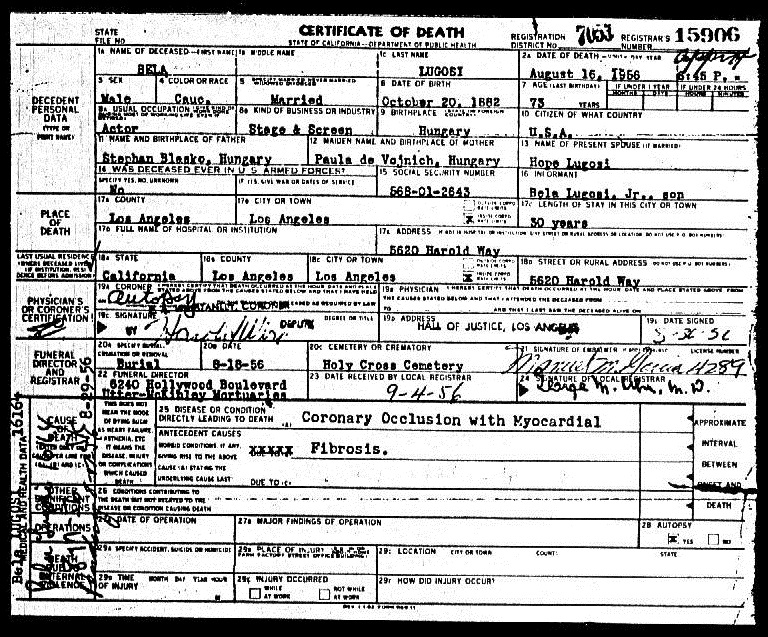 STATE FILE NO
CERTIFICATE OF DEATH
STATE OF CALIFORNIA—DEPARTMENT OF PUBLIC HEALTH
REGISTRATION DISTRICT NO. 7053
REGISTRAR'S NUMBER 15906
DECEDENT PERSONAL DATA (TYPE OR PRINT NAME)
1A NAME OF DECEASED—FIRST NAME 1B MIDDLE NAME 1C LAST NAME
BELA LUGOSI
2A DATE OF DEATH—MONTH DAY YEAR
August 16, 1956 6:45 P.
3 SEX 4 COLOR OR RACE 5
Male Cauc. Married
6 DATE OF BIRTH
October 20, 1882
7 AGE (LAST BIRTHDAY) IF UNDER 1 YEAR IF UNDER 24 HOURS
73 YEARS MONTHS DAYS HOURS MINUTES
8A USUAL OCCUPATION 8B KIND OF BUSINESS OR INDUSTRY
Actor Stage & Screen
9 BIRTHPLACE
Hungary
10 CITIZEN OF WHAT COUNTRY
U.S.A.
11 NAME AND BIRTHPLACE OF FATHER
Stephan Blasko, Hungary
12 MAIDEN NAME AND BIRTHPLACE OF MOTHER
Paula de Vojnich, Hungary
13 NAME OF PRESENT SPOUSE (IF MARRIED)
Hope Lugosi
14 WAS DECEASED EVER IN U S ARMED FORCES?
SPECIFY YES, NO, UNKNOWN IF YES, GIVE WAR OR DATES OF SERVICE
No
15 SOCIAL SECURITY NUMBER
568-01-2643
16 INFORMANT
Bela Lugosi, Jr., son
PLACE OF DEATH
17A COUNTY
Los Angeles
17B CITY OR TOWN
Los Angeles
17C LENGTH OF STAY IN THIS CITY OR TOWN
30 years
17D FULL NAME OF HOSPITAL OR INSTITUTION
17E ADDRESS
5620 Harold Way
LAST USUAL RESIDENCE
18A STATE
California
18B COUNTY
Los Angeles
18C CITY OR TOWN
Los Angeles
18D STREET OR RURAL ADDRESS
5620 Harold Way
PHYSICIAN'S OR CORONER'S CERTIFICATION
19A CORONER
Autopsy
19B PHYSICIAN
19C SIGNATURE
BY DEPUTY
DEGREE OR TITLE
19D ADDRESS
HALL OF JUSTICE, LOS ANGELES
19E DATE SIGNED
FUNERAL DIRECTOR AND REGISTRAR
20A SPECIFY BURIAL, CREMATION OR REMOVAL
Burial
20B DATE
8-18-56
20C CEMETERY OR CREMATORY
Holy Cross Cemetery
21 SIGNATURE OF EMBALMER LICENSE NUMBER
4289
22 FUNERAL DIRECTOR
6240 Hollywood Boulevard
Utter-McKinley Mortuaries
23 DATE RECEIVED BY LOCAL REGISTRAR
9-4-56
24 SIGNATURE OF LOCAL REGISTRAR
George M. Uhl, M.D.
CAUSE OF DEATH
25 DISEASE OR CONDITION DIRECTLY LEADING TO DEATH (A)
Coronary Occlusion with Myocardial
ANTECEDENT CAUSES
MORBID CONDITIONS, IF ANY, GIVING RISE TO THE ABOVE CAUSE (A) STATING THE UNDERLYING CAUSE LAST
XXXXX Fibrosis.
DUE TO (C)
APPROXIMATE INTERVAL BETWEEN ONSET AND DEATH
OTHER SIGNIFICANT CONDITIONS
26 CONDITIONS CONTRIBUTING TO THE DEATH BUT NOT RELATED TO THE DISEASE OR CONDITION CAUSING DEATH
OPERATIONS
DATE OF OPERATION
27B MAJOR FINDINGS OF OPERATION
28 AUTOPSY
YES NO
DEATH DUE TO EXTERNAL VIOLENCE
29A SPECIFY ACCIDENT, SUICIDE OR HOMICIDE
29B PLACE OF INJURY
29C LOCATION CITY OR TOWN COUNTY STATE
29D TIME OF INJURY MONTH DAY YEAR HOUR
29E INJURY OCCURRED
WHILE AT WORK NOT WHILE AT WORK
29F HOW DID INJURY OCCUR?
Bela LUGOSI
16164
8-29-56